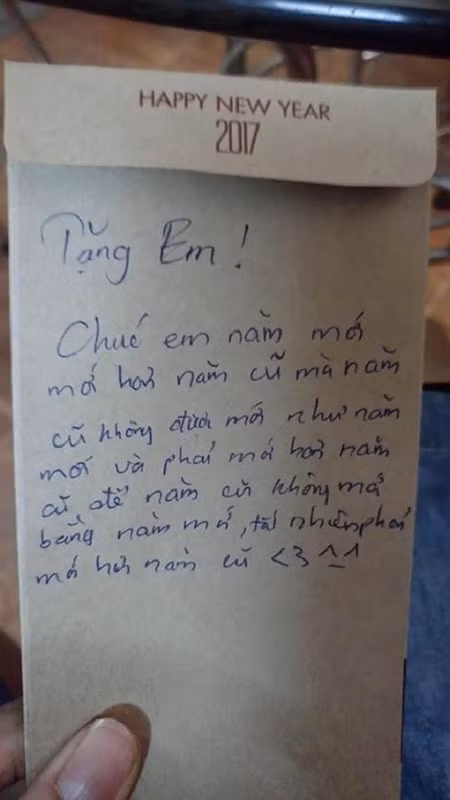 HAPPY NEW YEAR
2017
Tặng Em !
Chúc em năm mới
mới hơn năm cũ mà năm
cũ không được mới như năm
mới và phải mới hơn năm
cũ, để năm cũ không mới
bằng năm mới, tất nhiên phải
mới hơn năm cũ <3 ^_^